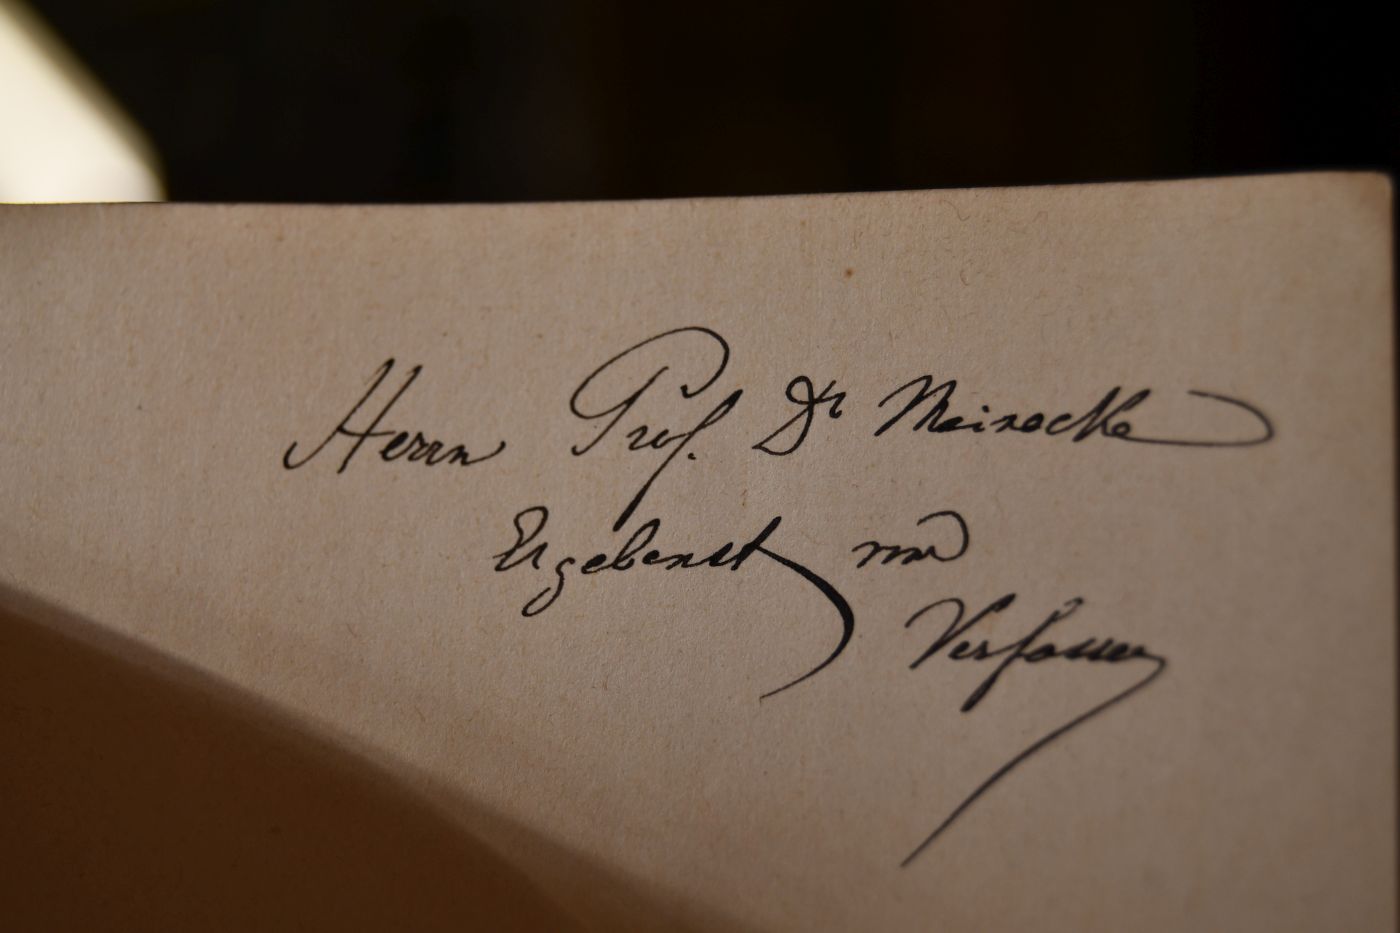 Herrn Prof. Dr Meinecke
Ergebenst vom
Verfasser